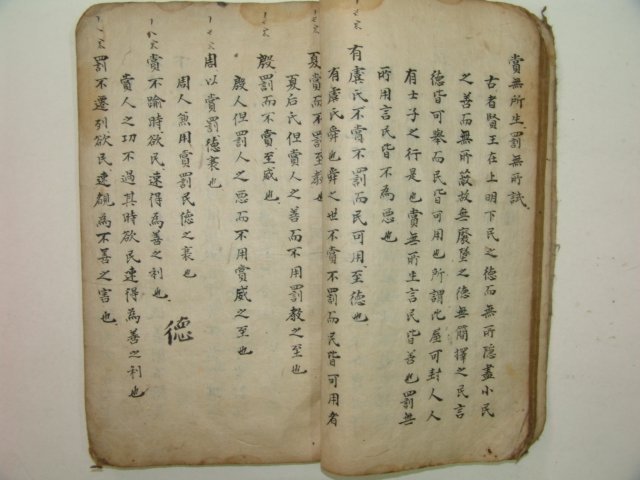 賞無所生罰無所試
古者賢王在上明下民之德而無所隱盡小民
之善而無所蔽故無廢墜之德無簡擇之民言
德皆可舉而民皆可用也所謂比屋可封人人
有士子之行是也賞無所生言民皆善也罰無
所用言民皆不為惡也
有虞氏不賞不罰而民可用至德也
有虞氏舜也舜之世不賞不罰而民皆可用者
夏賞而不罰至教也
夏后氏但賞人之善而不用罰教之至也
殷罰而不賞至威也
殷人但罰人之惡而不用賞威之至也
周以賞罰德衰也
周人兼用賞罰民德之衰也
賞不踰時欲民速得為善之利也
德
賞人之功不過其時欲民速得為善之利也
罰不遷列欲民速覩為不善之害也